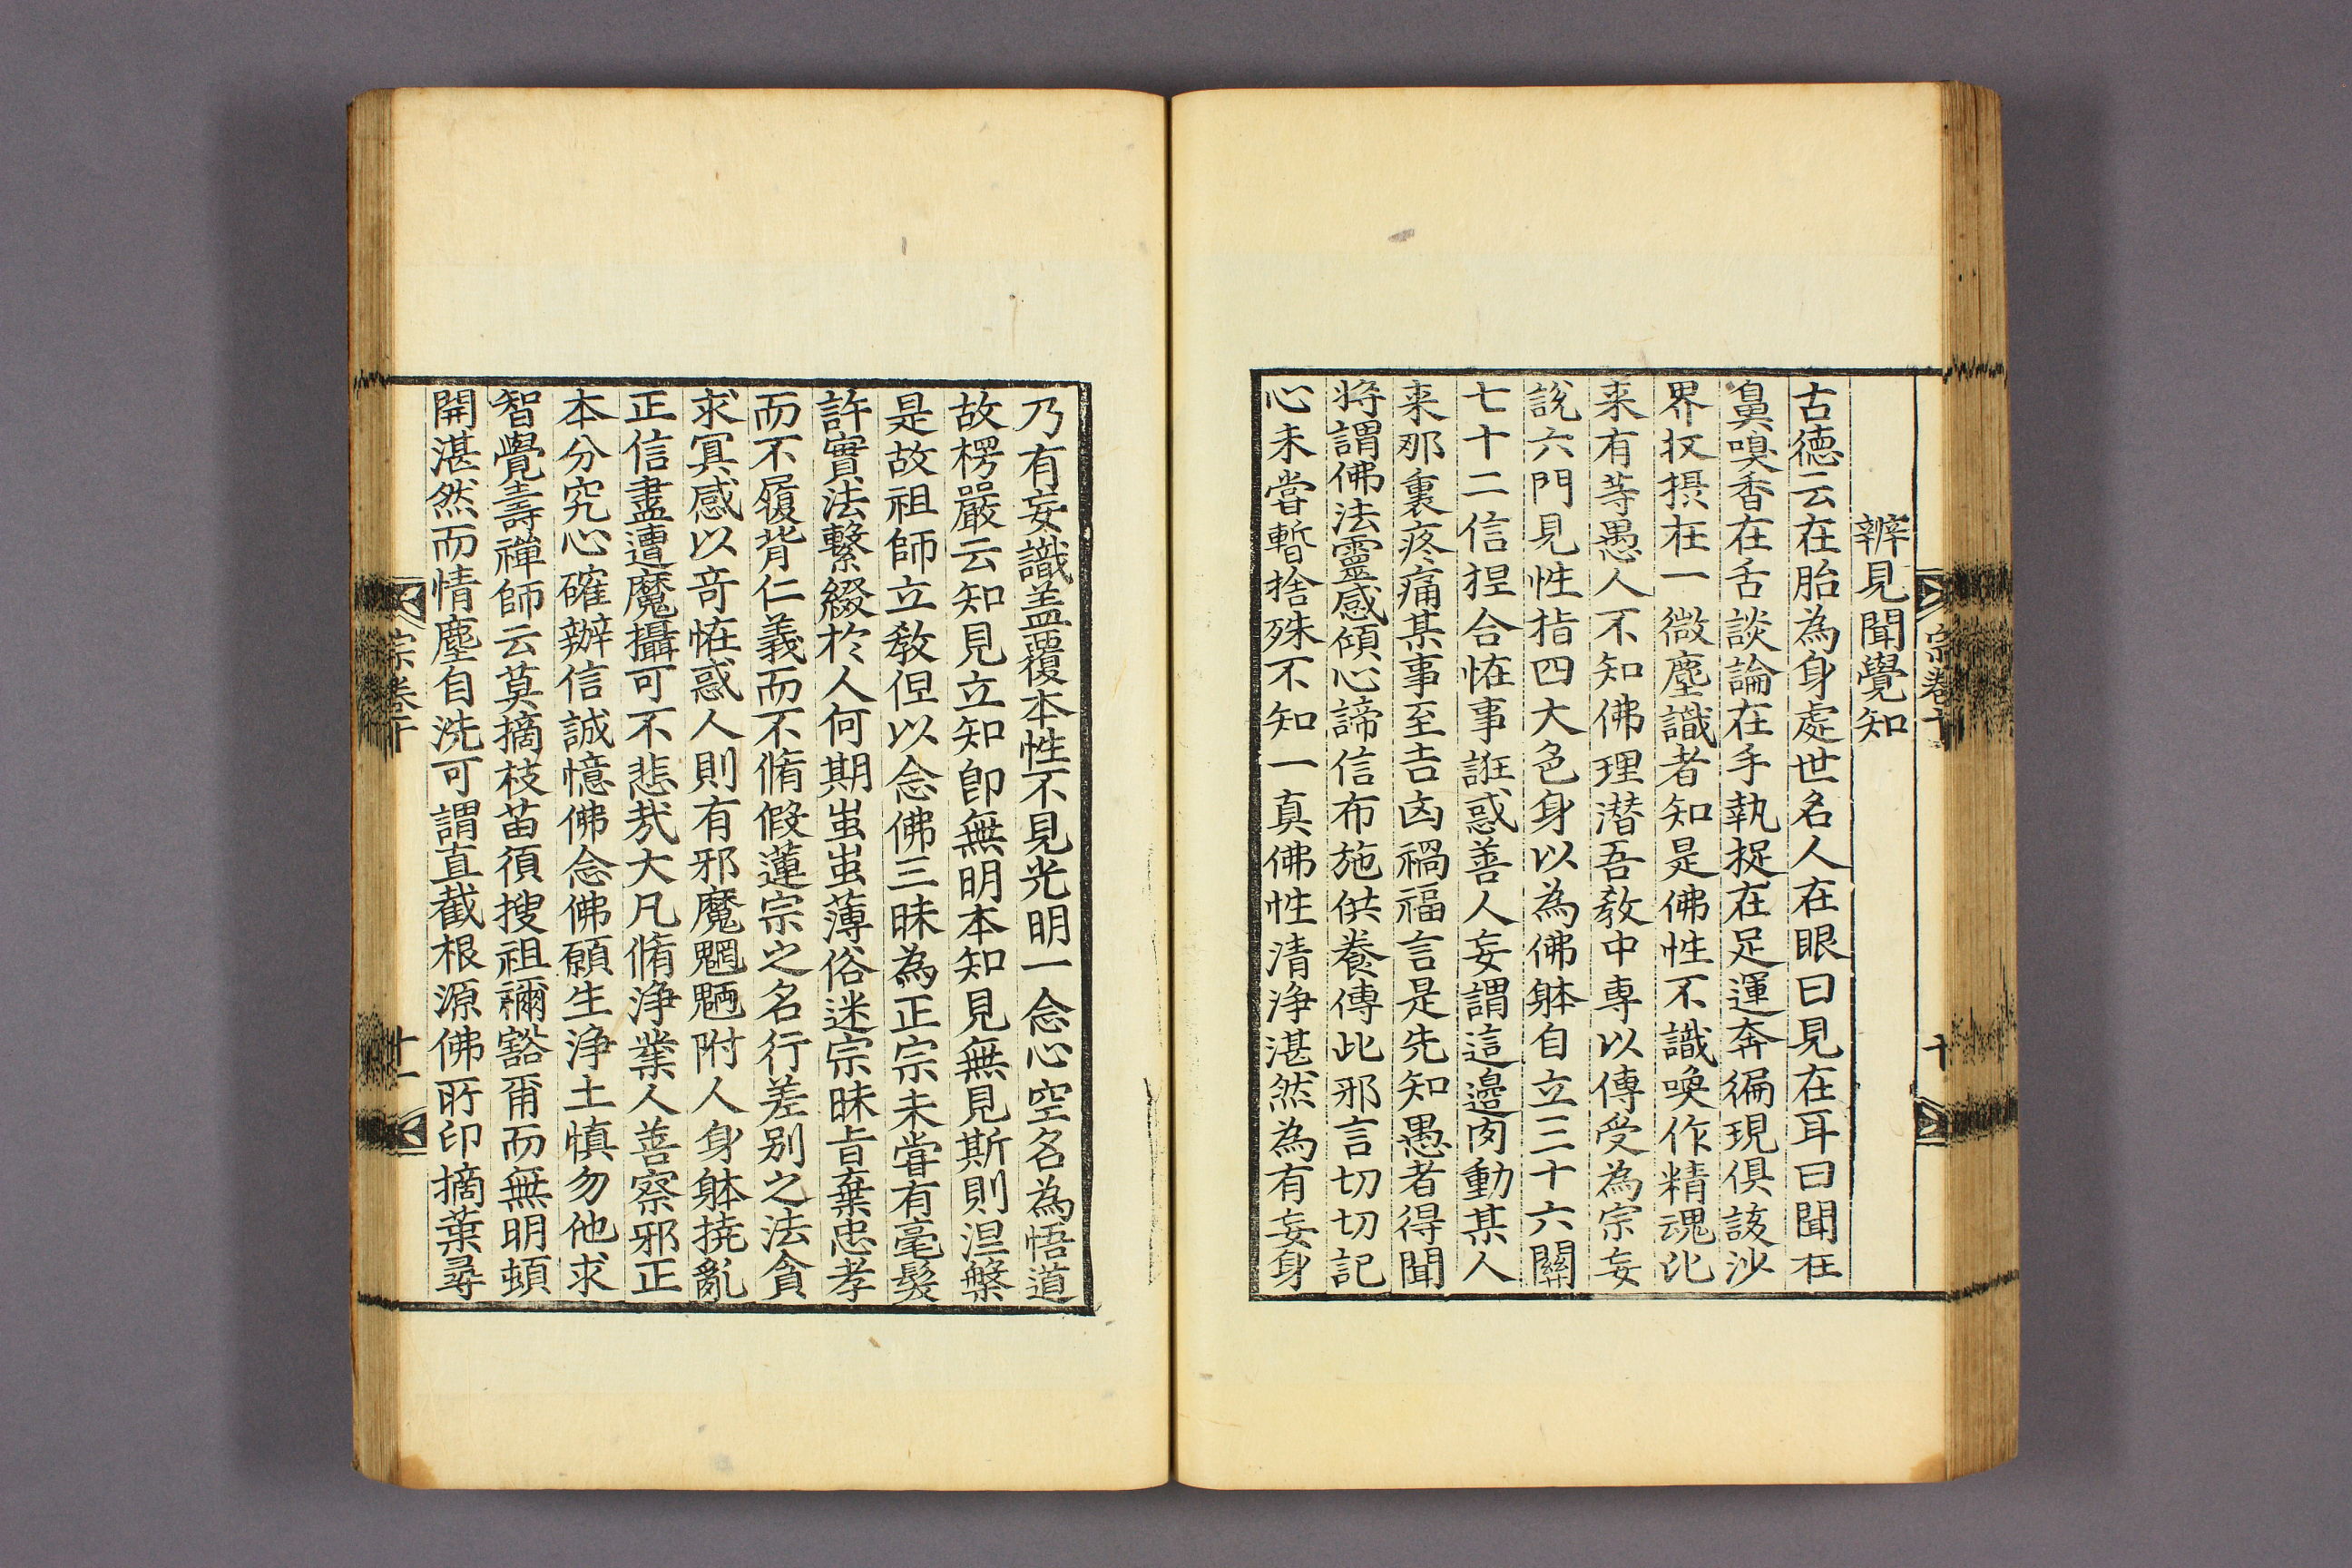 宗卷十
十
辨見聞覺知
古德云在胎為身處世名人在眼曰見在耳曰聞在
鼻嗅香在舌談論在手執捉在足運奔徧現俱該沙
界収摂在一微塵識者知是佛性不識喚作精魂氾
来有等愚人不知佛理潜吾教中專以傳受為宗妄
說六門見性指四大色身以為佛躰自立三十六關
七十二信捏合恠事誑惑善人妄謂這邉肉動某人
来那裏疼痛某事至吉凶禍福言是先知愚者得聞
将謂佛法靈感傾心諦信布施供養傳此邪言切切記
心未嘗暫捨殊不知一真佛性清淨湛然為有妄身
乃有妄識盖覆本性不見光明一念心空名為悟道
故楞嚴云知見立知卽無明本知見無見斯則涅槃
是故祖師立教但以念佛三昧為正宗未嘗有毫髮
許實法繫綴於人何期蚩蚩薄俗迷宗昧旨棄忠孝
而不履背仁義而不脩假蓮宗之名行差别之法貪
求冥感以竒恠惑人則有邪魔魍魎附人身躰撓亂
正信盡遭魔攝可不悲㢤大凡脩淨業人善察邪正
本分究心確辦信誠憶佛念佛願生淨土慎勿他求
智覺壽禪師云莫摘枝苗須搜祖禰豁爾而無明頓
開湛然而情塵自洗可謂直截根源佛所印摘葉尋
宗卷十
十一